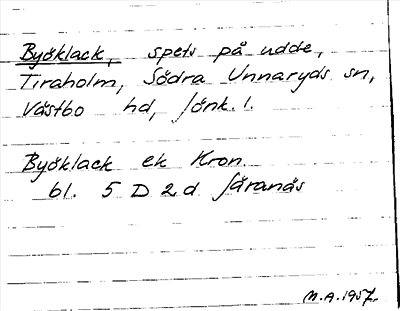 Byöklack, spets på udde,
Tiraholm, Södra Unnaryds sn,
Västbo hd, Jönk. l.
Byöklack ek Kron.
bl. 5 D 2 d Färanäs
M.A. 1957.